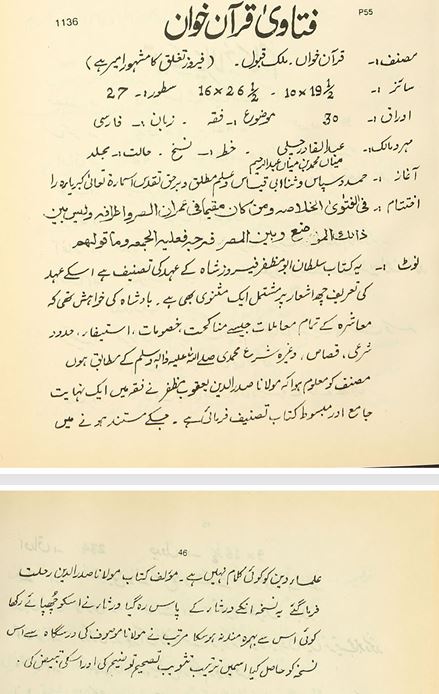 P55
1136
فتاویٰ قرآن خوان
مصنف :۔ قرآن خواں۔ ملک قبول۔ (فیروز تغلق کا مشہور امیر ہے)
سائز :۔ 10 x 19 1/2 - 16 x 26 1/2 سطور :۔ 27
اوراق :۔ 30 موضوع :۔ فقہ ۔ زبان :۔ فارسی
مہر و مالک :۔ عبدالقادر جیلی خط :۔ نسخ ۔ حالت :۔ مجلد
میاں محمد بن میاں عبدالرحیم
آغاز :۔ حمد و سپاس و ثنائی قیاس علیم مطلق و برحق تقدس اسمارۂ تعالیٰ کبریارہ را
اختتام :۔ فی الفتویٰ الخلاصہ ومن کان مقیما فی عمران المصر واطرافہ ولیس بین
ذالک الموضع وبین المصر فرجہ فعلیہ الجمعہ وما قولہم
نوٹ :۔ یہ کتاب سلطان ابو مظفر فیروز شاہ کے عہد کی تصنیف ہے اسکے عہد
کی تعریف چھ اشعار پر مشتمل ایک مثنوی بھی ہے ۔ بادشاہ کی خواہش تھی کہ
معاشرہ کے تمام معاملات جیسے مناکحت، خصومات ، استیفار ، حدود
شرعی ، قصاص ، وغیرہ شرع محمدی صلے اللہ علیہ وآلہ وسلم کے مطابق ہوں
مصنف کو معلوم ہوا کہ مولانا صدر الدین یعقوب مظفر نے فقہ میں ایک نہایت
جامع اور مبسوط کتاب تصنیف فرمائی ہے ۔ جسکے مستند ہونے میں
46
علمار دین کو کوئی کلام نہیں ہے ۔ مؤلف کتاب مولانا صدر الدین رحلت
فرما گئے یہ نسخہ انکے ورثار کے پاس رہ گیا ورثار نے اسکو چھپائے رکھا
کوئی اس سے بہرہ مند نہ ہو سکا مرتب نے مولانا موصوف کی درسگاہ سے اس
نسخہ کو حاصل کیا اسمیں ترتیب تثویب تصحیح توضیح کی اور اسکی تبییض کی ۔